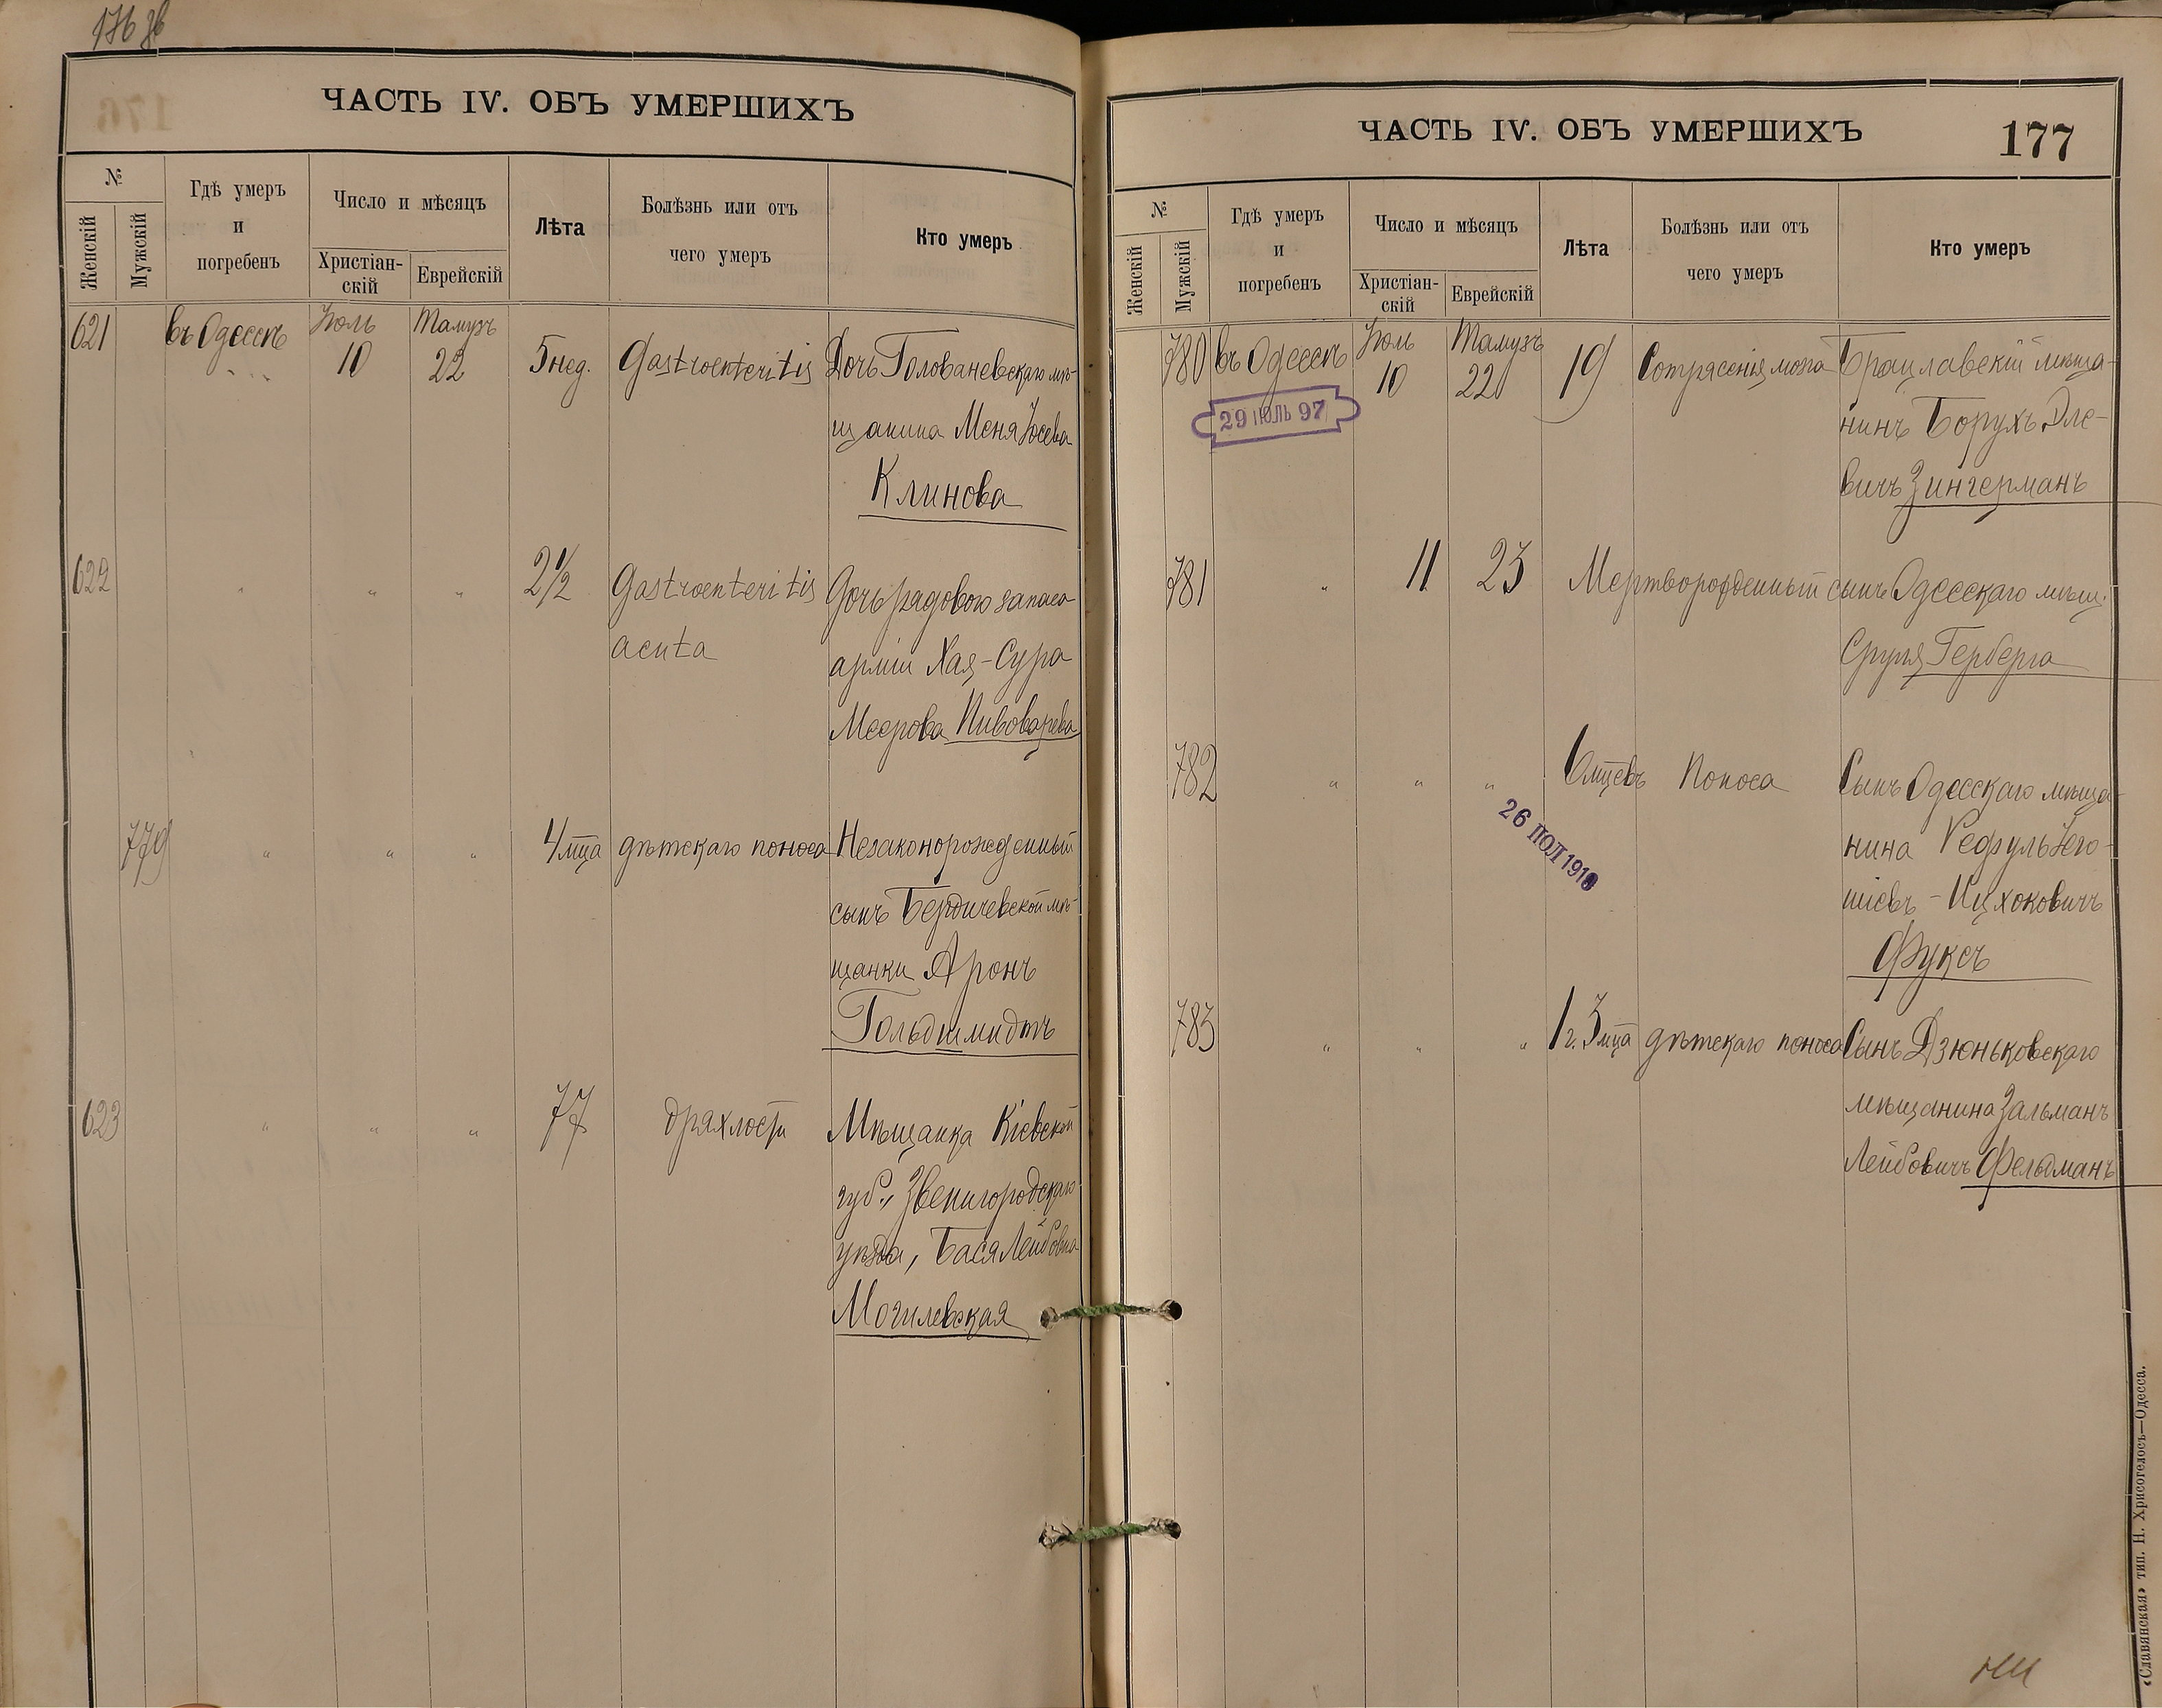 176 зв
ЧАСТЬ IV. ОБЪ УМЕРШИХЪ
№
Женскій
Мужскій
Гдѣ умеръ
и
погребенъ
Число и мѣсяцъ
Христіан-
скій
Еврейскій
Лѣта
Болѣзнь или отъ
чего умеръ
Кто умеръ
621 въ Одессѣ Іюль 10 Тамузъ 22 5 нед. Gastroenteritis Дочь Голованевскаго мѣ-
щанина Меня Іосева
Клинова
622 " " " 2 1/2 Gastroenteritis Дочь рядового запаса
acuta арміи Хая-Сура
Меерова Пивоварева
779 " " " 4 мца дѣтскаго поноса Незаконорожденный
сынъ Бердичевской мѣ-
щанки Аронъ
Гольдшмидтъ
623 " " " 77 дряхлости Мѣщанка Кіевской
губ., Звенигородскаго
уѣзда, Бася Лейбовна
Могилевская
ЧАСТЬ IV. ОБЪ УМЕРШИХЪ
177
№
Женскій
Мужскій
Гдѣ умеръ
и
погребенъ
Число и мѣсяцъ
Христіан-
скій
Еврейскій
Лѣта
Болѣзнь или отъ
чего умеръ
Кто умеръ
780 въ Одессѣ Іюль 10 Тамузъ 22 19 Сотрясенія мозга Брацлавскій мѣща-
29 ІЮЛЬ 97
нинъ Борухъ Эле-
вичъ Зингерманъ
781 " 11 23 Мертворожденный сынъ Одесскаго мѣщ.
Сруля Герберга
782 " " " 6 мцевъ Поноса Сынъ Одесскаго мѣща-
26 ПОЛ 1910
нина Рефулъ Іего-
шіевъ-Ицхоковичъ
Фуксъ
783 " " " 1 г. 3 мца дѣтскаго поноса Сынъ Дзюньковскаго
мѣщанина Зальманъ
Лейбовичъ Фельдманъ
«Славянская» тип. Н. Хрисогелосъ—Одесса.